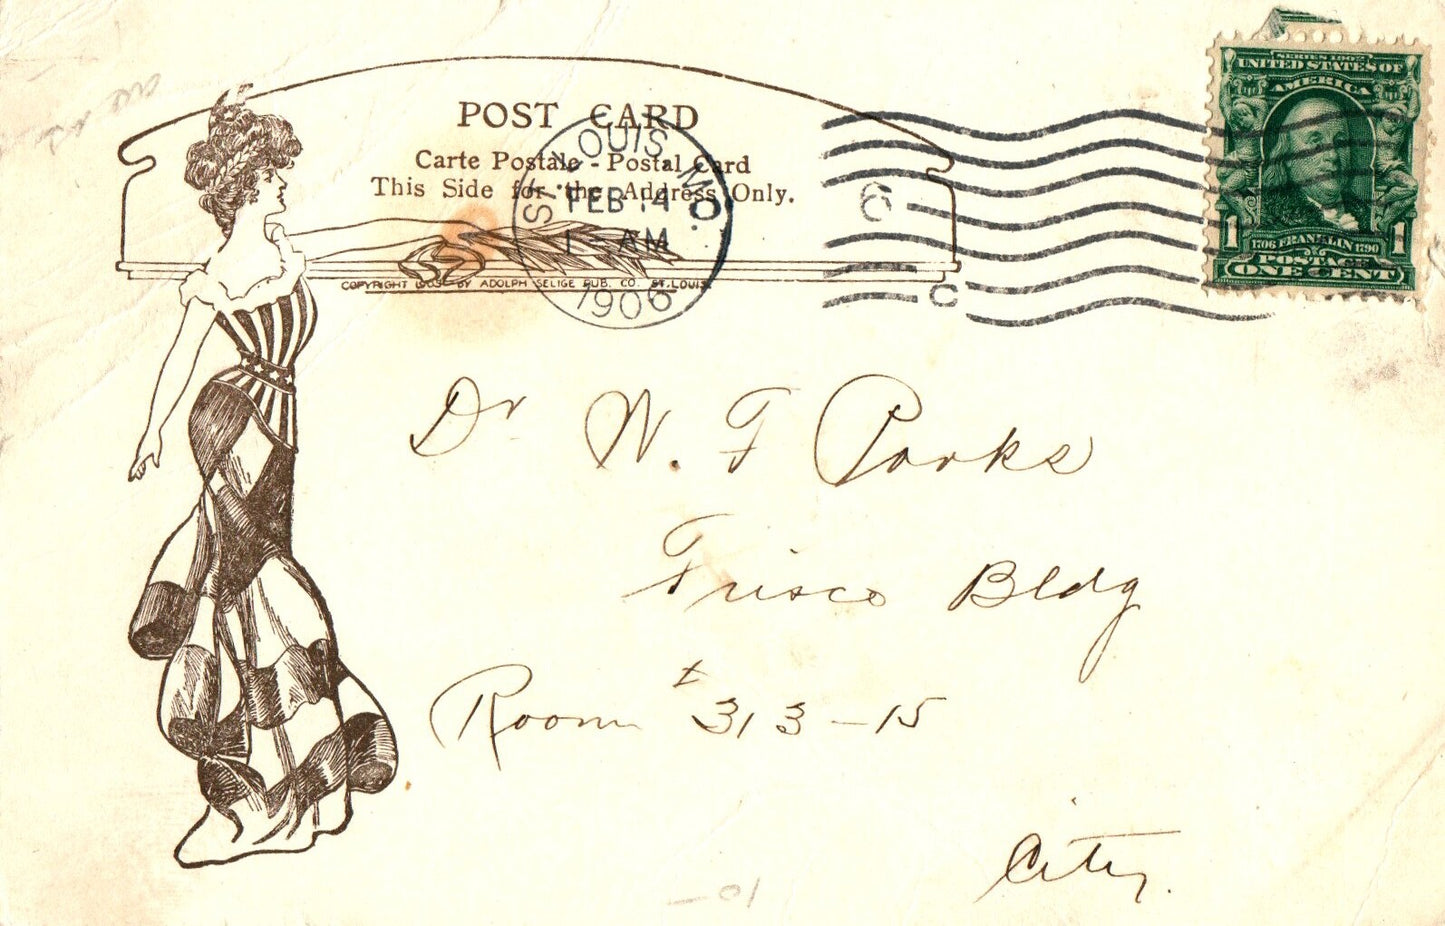 POST CARD
Carte Postale - Postal Card
This Side for the Address Only.
COPYRIGHT 1905 BY ADOLPH SELIGE PUB. CO. ST. LOUIS.
ST. LOUIS, MO.
FEB 14
1 - AM
1906
SERIES 1902
UNITED STATES OF
AMERICA
1706 FRANKLIN 1790
1 POSTAGE 1
ONE CENT
Dr W. F Parks
Frisco Bldg
Room # 313-15
City.
-01